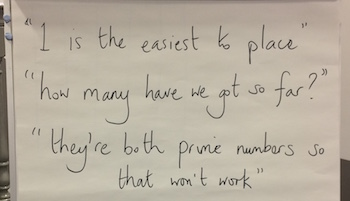 "1 is the easiest to place"
"how many have we got so far?"
"they're both prime numbers so
that won't work"